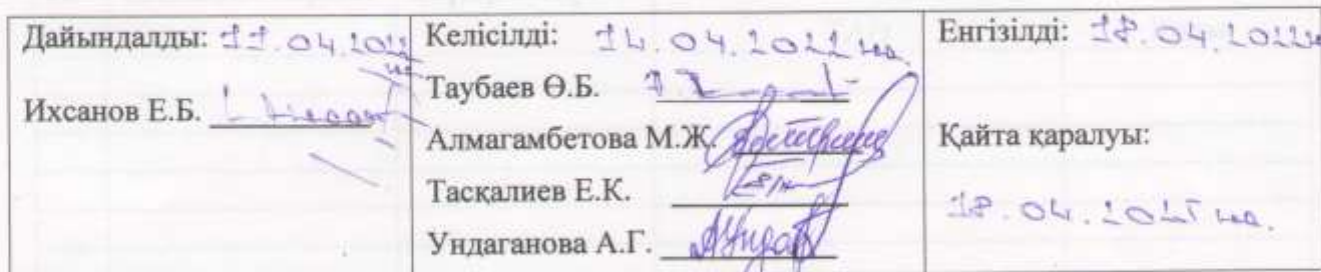 Дайындалды: 11.04.2022
Ихсанов Е.Б.
Келісілді: 14.04.2022
Таубаев Ө.Б.
Алмагамбетова М.Ж.
Тасқалиев Е.К.
Ундаганова А.Г.
Енгізілді: 18.04.2022
Қайта қаралуы:
18.04.2025